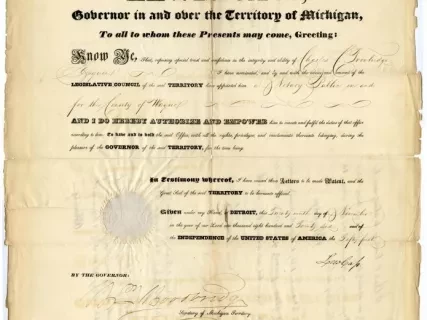 Governor in and over the Territory of Michigan,
To all to whom these Presents may come, Greeting:
Know Ye, That, reposing special trust and confidence in the integrity and ability of Charles C. Trowbridge
Esquire I have nominated, and by and with the advice and consent of the
LEGISLATIVE COUNCIL of the said TERRITORY have appointed him a Notary Public in and
for the County of Wayne
AND I DO HEREBY AUTHORIZE AND EMPOWER him to execute and fulfil the duties of that office
according to law: To have and to hold the said Office, with all the rights, privileges, and emoluments thereunto belonging, during the
pleasure of the GOVERNOR of the said TERRITORY, for the time being.
In Testimony whereof, I have caused these Letters to be made Patent, and the
Great Seal of the said TERRITORY to be hereunto affixed.
Given under my Hand, at DETROIT, this Twenty day of November
in the year of our Lord one thousand eight hundred and Twenty and of
the INDEPENDENCE of the UNITED STATES of AMERICA the Fifty first
Lew Cass
BY THE GOVERNOR:
Woodbridge
Secretary of Michigan Territory